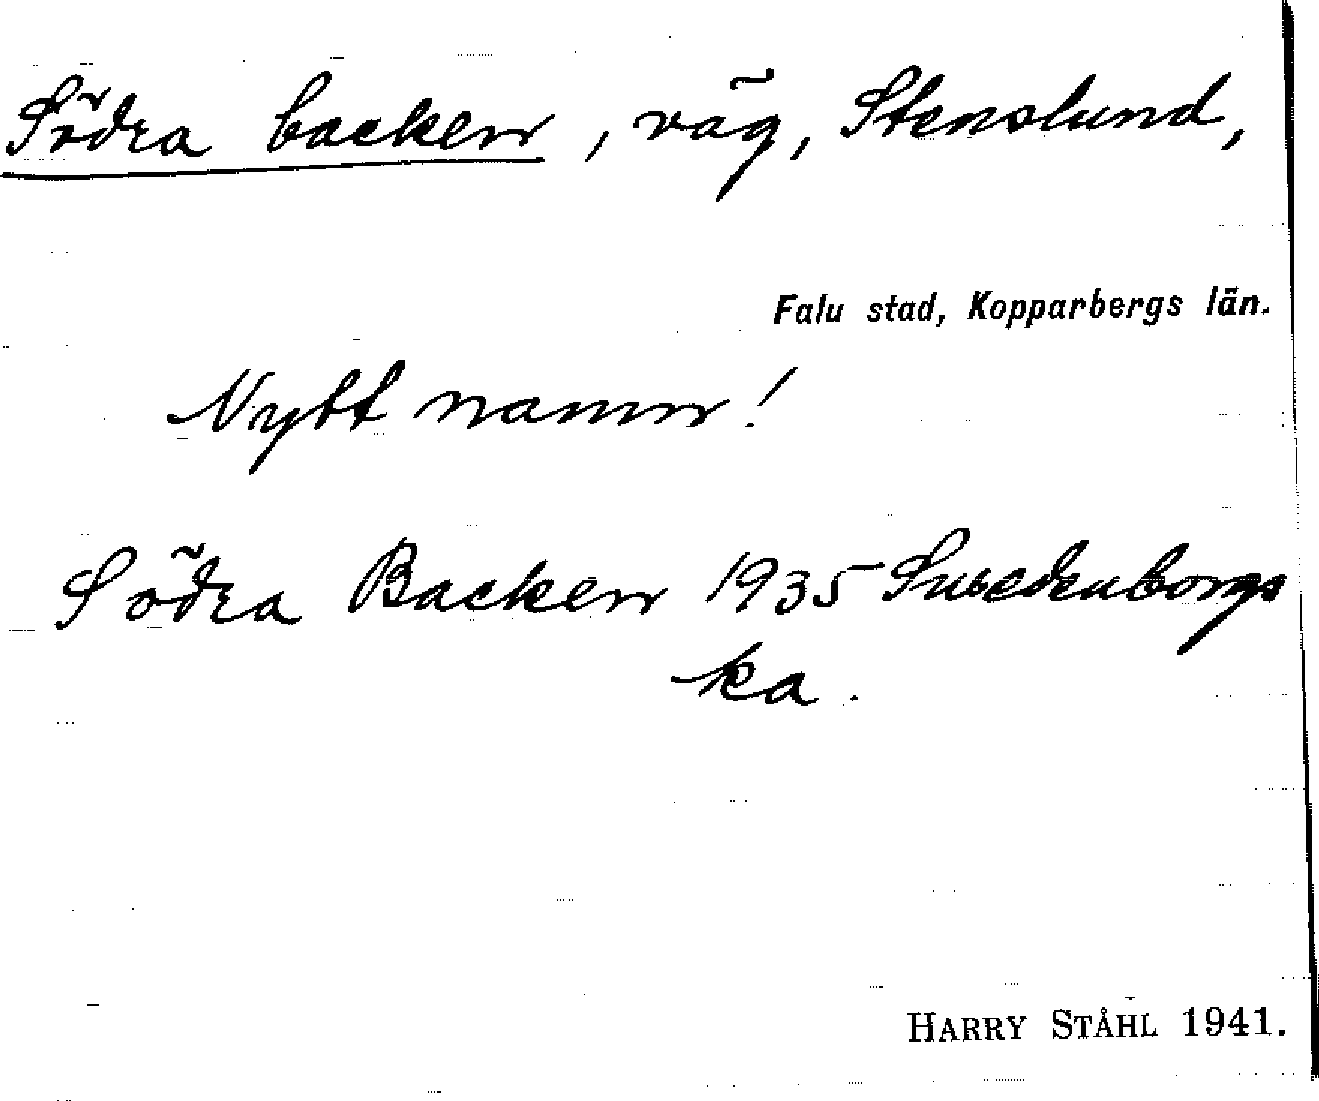 Södra backen, väg, Stenslund,
Falu stad, Kopparbergs län.
Nytt namn!
Södra Backen 1935 Swedenborgs
ka.
HARRY STÅHL 1941.